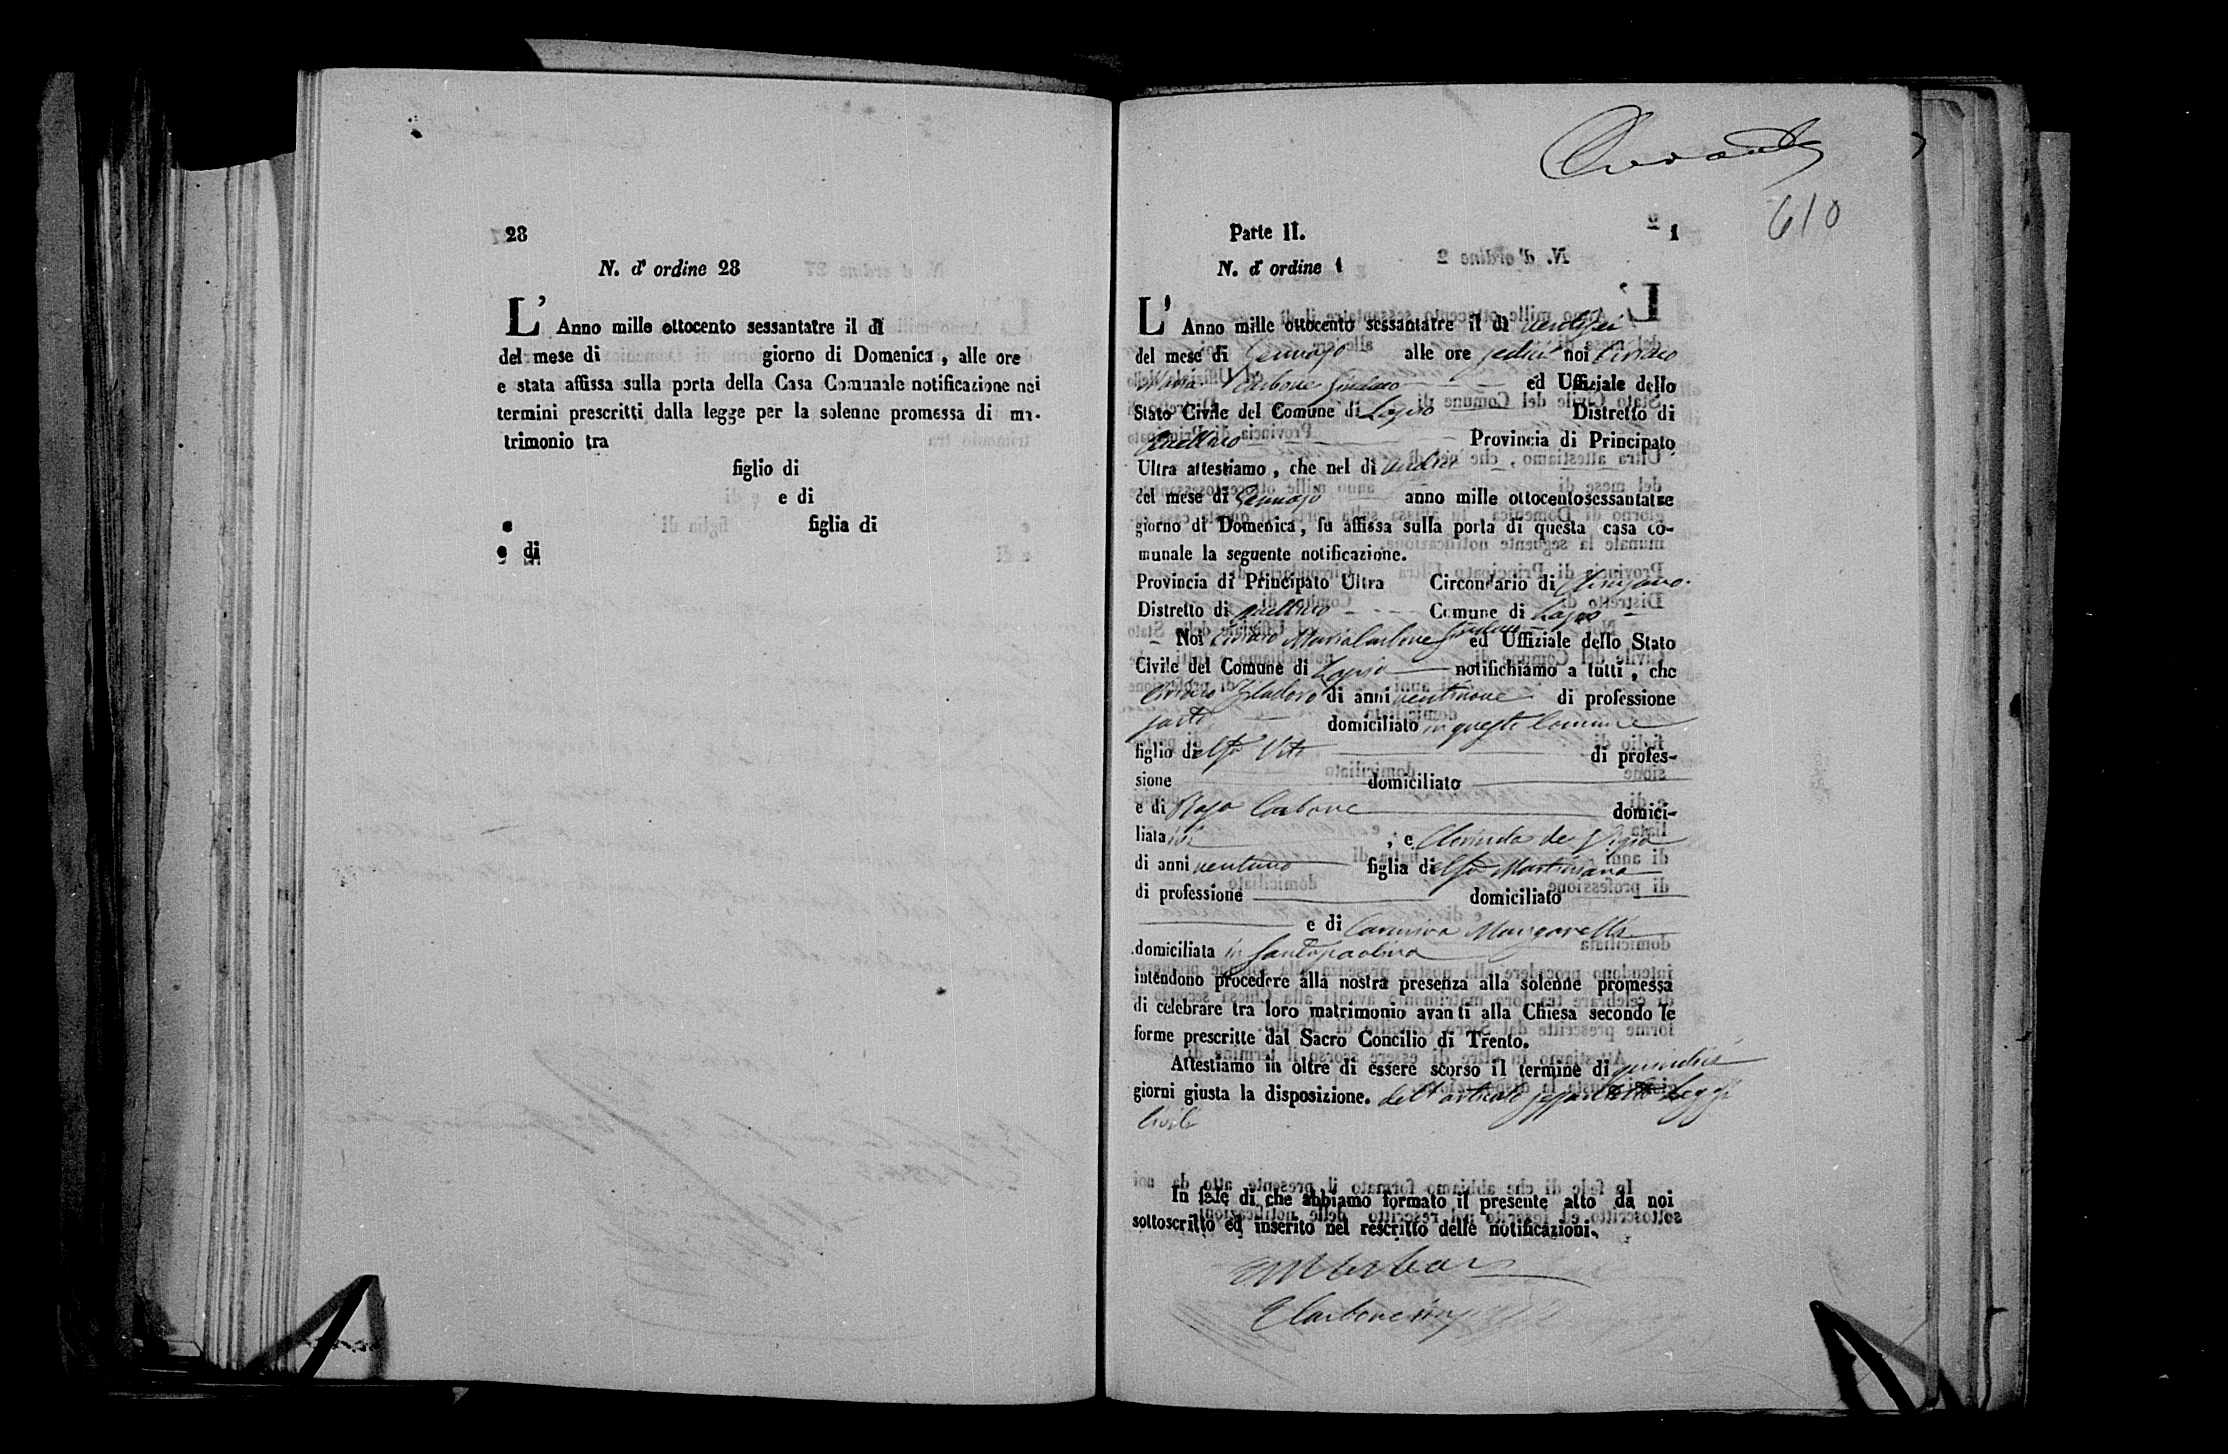 28
N. d' ordine 28
L' Anno mille ottocento sessantatre il di
del mese di giorno di Domenica, alle ore
e stata affissa sulla porta della Casa Comunale notificazione nei
termini prescritti dalla legge per la solenne promessa di ma-
trimonio tra
figlio di
e di
e figlia di
e di
610
Parte II. 1
N. d' ordine 1
L' Anno mille ottocento sessantatre il di ventisei
del mese di Gennajo alle ore sedici noi Ciriaco
Maria Carbone Sindaco ed Uffiziale dello
Stato Civile del Comune di Lapio Distretto di
Avellino Provincia di Principato
Ultra attestiamo, che nel di undici
del mese di Gennajo anno mille ottocentosessantatre
giorno di Domenica, fu affissa sulla porta di questa casa co-
munale la seguente notificazione.
Provincia di Principato Ultra Circondario di Chiusano
Distretto di Avellino Comune di Lapio
Noi Ciriaco Maria Carbone Sindaco ed Uffiziale dello Stato
Civile del Comune di Lapio notifichiamo a tutti, che
di anni ventinove di professione
sarto domiciliato in questo Comune
figlio di Vito di profes-
sione domiciliato
e di Rosa Carbone domici-
liata ivi ; e Clorinda de
di anni ventuno figlia di Martiniano
di professione domiciliato
e di Carmina Mangarelli
domiciliata in Santopaolina
intendono procedere alla nostra presenza alla solenne promessa
di celebrare tra loro matrimonio avanti alla Chiesa secondo le
forme prescritte dal Sacro Concilio di Trento.
Attestiamo in oltre di essere scorso il termine di quindici
giorni giusta la disposizione. dell'articolo Leggi
Civili
In fede di che abbiamo formato il presente atto da noi
sottoscritto ed inserito nel rescritto delle notificazioni.
C Carbone